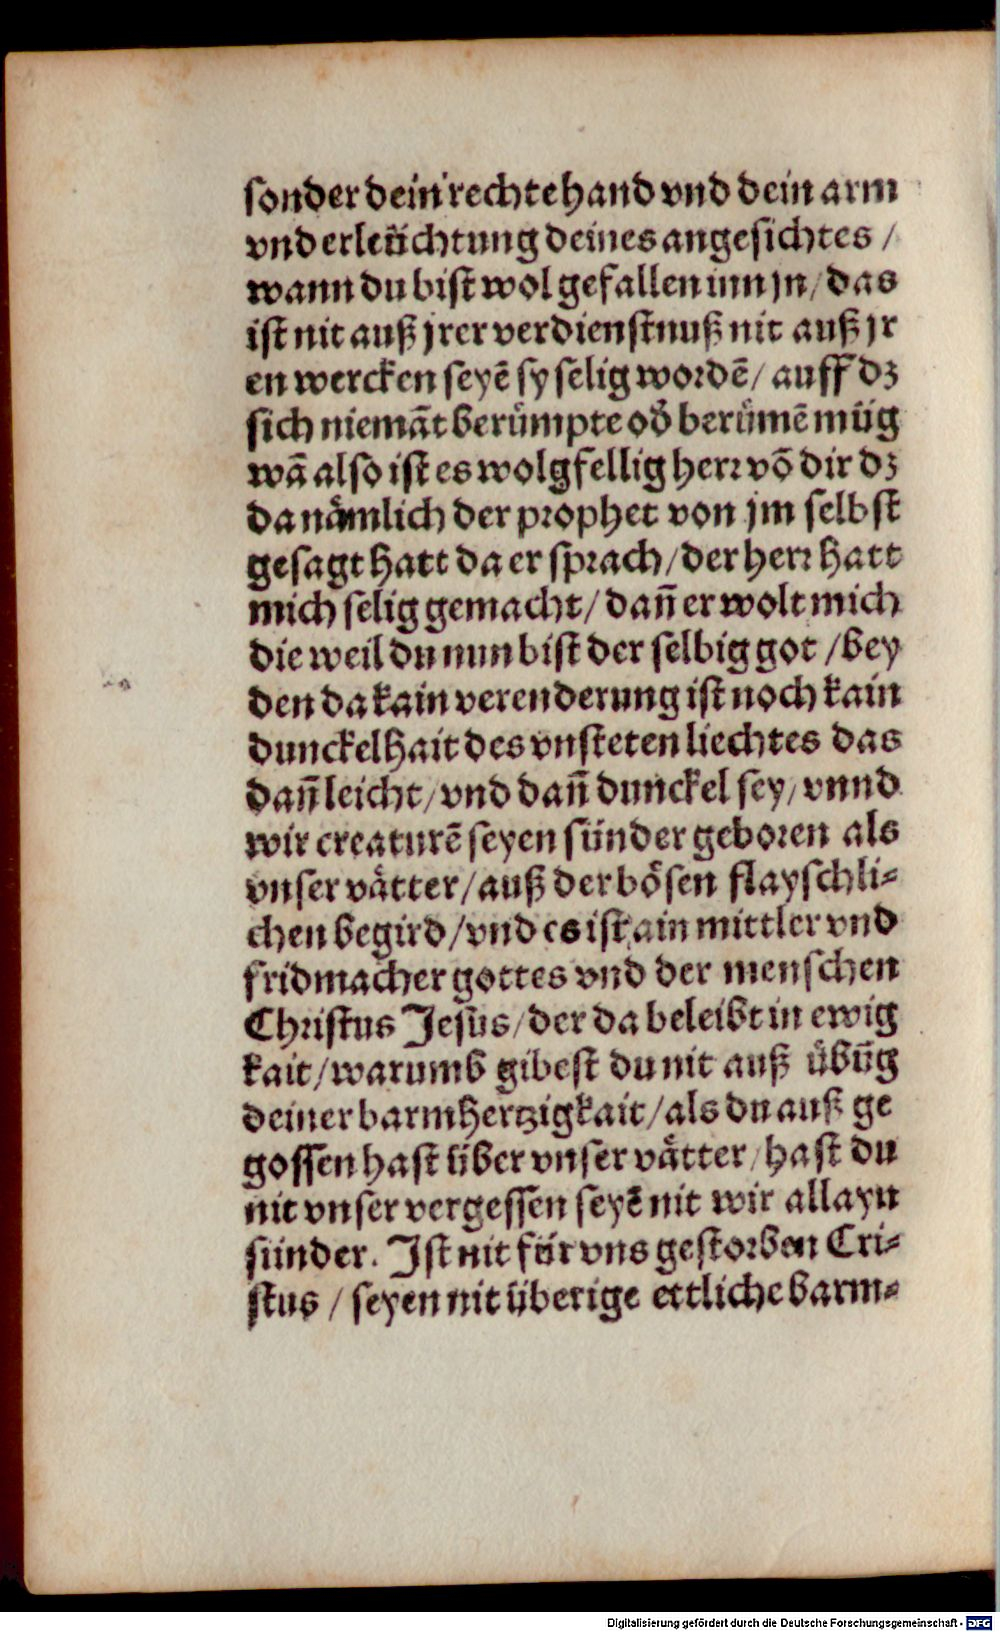 sonder dein rechte hand vnd dein arm
vnd erleüchtung deines angesichtes /
wann du bist wol gefallen inn jn / das
ist nit auß jrer verdienstnuß nit auß jr
en wercken seyē sy selig wordē / auff dz
sich niemāt berümpte od̕ berümē müg
wā also ist es wolgfellig herr vō dir dz
da nämlich der prophet von jm selbst
gesagt hatt da er sprach / der herr hatt
mich selig gemacht / dañ er wolt mich
die weil du nun bist der selbig got / bey
den da kain verenderung ist noch kain
dunckelhait des vnsteten liechtes das
dañ leicht / vnd dañ dunckel sey / vnnd
wir creaturē seyen sünder geboren als
vnser vätter / auß der bösen flayschli⸗
chen begird / vnd es ist ain mittler vnd
fridmacher gottes vnd der menschen
Christus Jesus / der da beleibt in ewig
kait / warumb gibest du nit auß übūg
deiner barmhertzigkait / als du auß ge
gossen hast über vnser vätter / hast du
nit vnser vergessen seyē nit wir allayn
sünder. Ist nit für vns gestorben Cri⸗
stus / seyen nit überige ettliche barm⸗
Digitalisierung gefördert durch die Deutsche Forschungsgemeinschaft - DFG